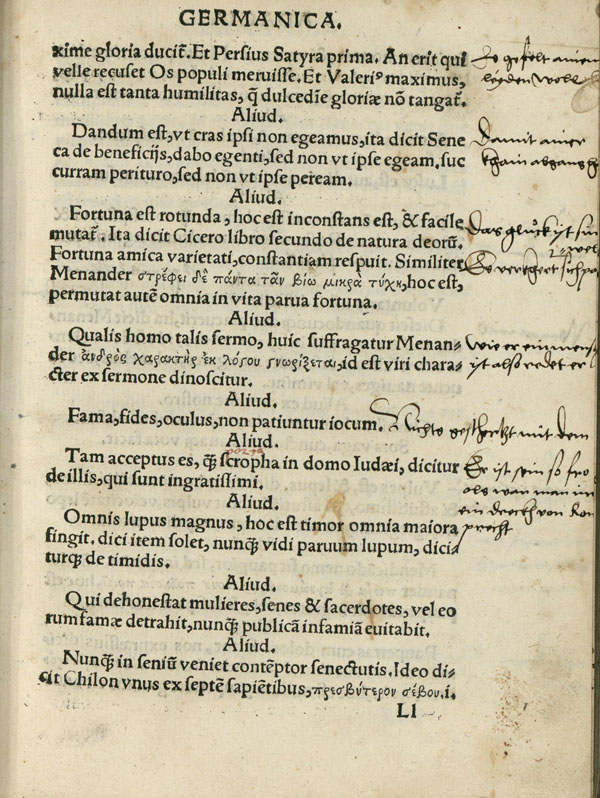 GERMANICA.
xime gloria ducit᷒. Et Persius Satyra prima. An erit qui
velle recuset Os populi meruisse. Et Valeriꝰ maximus,
nulla est tanta humilitas, q̃ dulcedĩe gloriæ nõ tangat᷒.
Aliud.
Dandum est, vt cras ipsi non egeamus, ita dicit Sene
ca de beneficijs, dabo egenti, sed non vt ipse egeam. suc
curram perituro, sed non vt ipse peream.
Aliud.
Fortuna est rotunda, hoc est inconstans est, & facile
mutat᷒. Ita dicit Cicero libro secundo de natura deorũ.
Fortuna amica varietati, constantiam respuit. Similiter
Menander στρέφει δὲ πάντα τἂν βίω μικρὰ τύχη, hoc est,
permutat autẽ omnia in vita parua fortuna.
Aliud.
Qualis homo talis sermo, huic suffragatur Menan-
der ἀνδρὸς χαρακτὴρ ἐκ λόγου γνωρίζεται, id est viri chara-
cter ex sermone dinoscitur.
Aliud.
Fama, fides, oculus, non patiuntur iocum.
Aliud.
Tam acceptus es, q̃ȝ scropha in domo Iudæi, dicitur
de illis, qui sunt ingratissimi.
Aliud.
Omnis lupus magnus, hoc est timor omnia maiora
fingit. dici item solet, nunq̃ȝ vidi paruum lupum, dici-
turq̃ de timidis.
Aliud.
Qui dehonestat mulieres, senes & sacerdotes, vel eo
rum famæ detrahit, nunq̃ȝ publicã infamiã euitabit.
Aliud.
Nunq̃ȝ in seniũ veniet contẽptor senectutis. Ideo di-
cit Chilon vnus ex septẽ sapiẽtibus, πρεσβύτερον σέβου. i.
Ll
leyden woll
Damit ainer
Das glückh ist sin
wel
wie er ein mens
ist also redet er
Nichts geschertzt mit dem
Er ist sein so fro
als wan man im
ein dreckh von